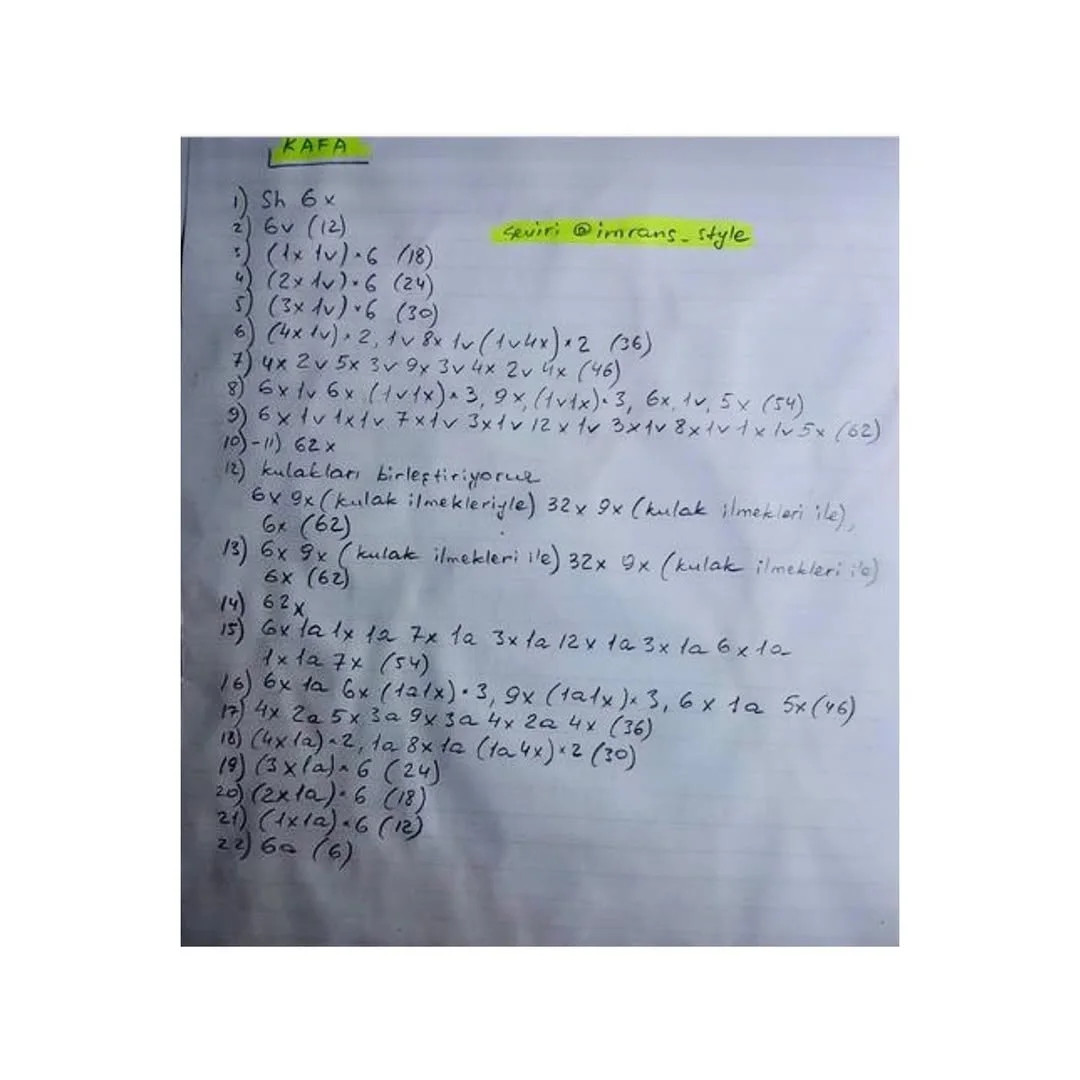 KAFA
1) Sh 6x
2) 6v (12)
çeviri @imrans_style
3) (1x 1v)×6 (18)
4) (2x 1v)×6 (24)
5) (3x 1v)×6 (30)
6) (4x 1v)×2, 1v 8x 1v (1v 4x)×2 (36)
7) 4x 2v 5x 3v 9x 3v 4x 2v 4x (46)
8) 6x 1v 6x (1v1x)×3, 9x, (1v1x)×3, 6x, 1v, 5x (54)
9) 6x 1v 1x 1v 7x 1v 3x 1v 12x 1v 3x 1v 8x 1v 1x 1v 5x (62)
10)-11) 62x
12) kulakları birleştiriyoruz
6x 9x (kulak ilmekleriyle) 32x 9x (kulak ilmekleri ile),
6x (62)
13) 6x 9x (kulak ilmekleri ile) 32x 9x (kulak ilmekleri ile)
6x (62)
14) 62x
15) 6x 1a 1x 1a 7x 1a 3x 1a 12x 1a 3x 1a 6x 1a
1x 1a 7x (54)
16) 6x 1a 6x (1a1x)×3, 9x (1a1x)×3, 6x 1a 5x (46)
17) 4x 2a 5x 3a 9x 3a 4x 2a 4x (36)
18) (4x 1a)×2, 1a 8x 1a (1a 4x)×2 (30)
19) (3x 1a)×6 (24)
20) (2x 1a)×6 (18)
21) (1x 1a)×6 (12)
22) 6a (6)